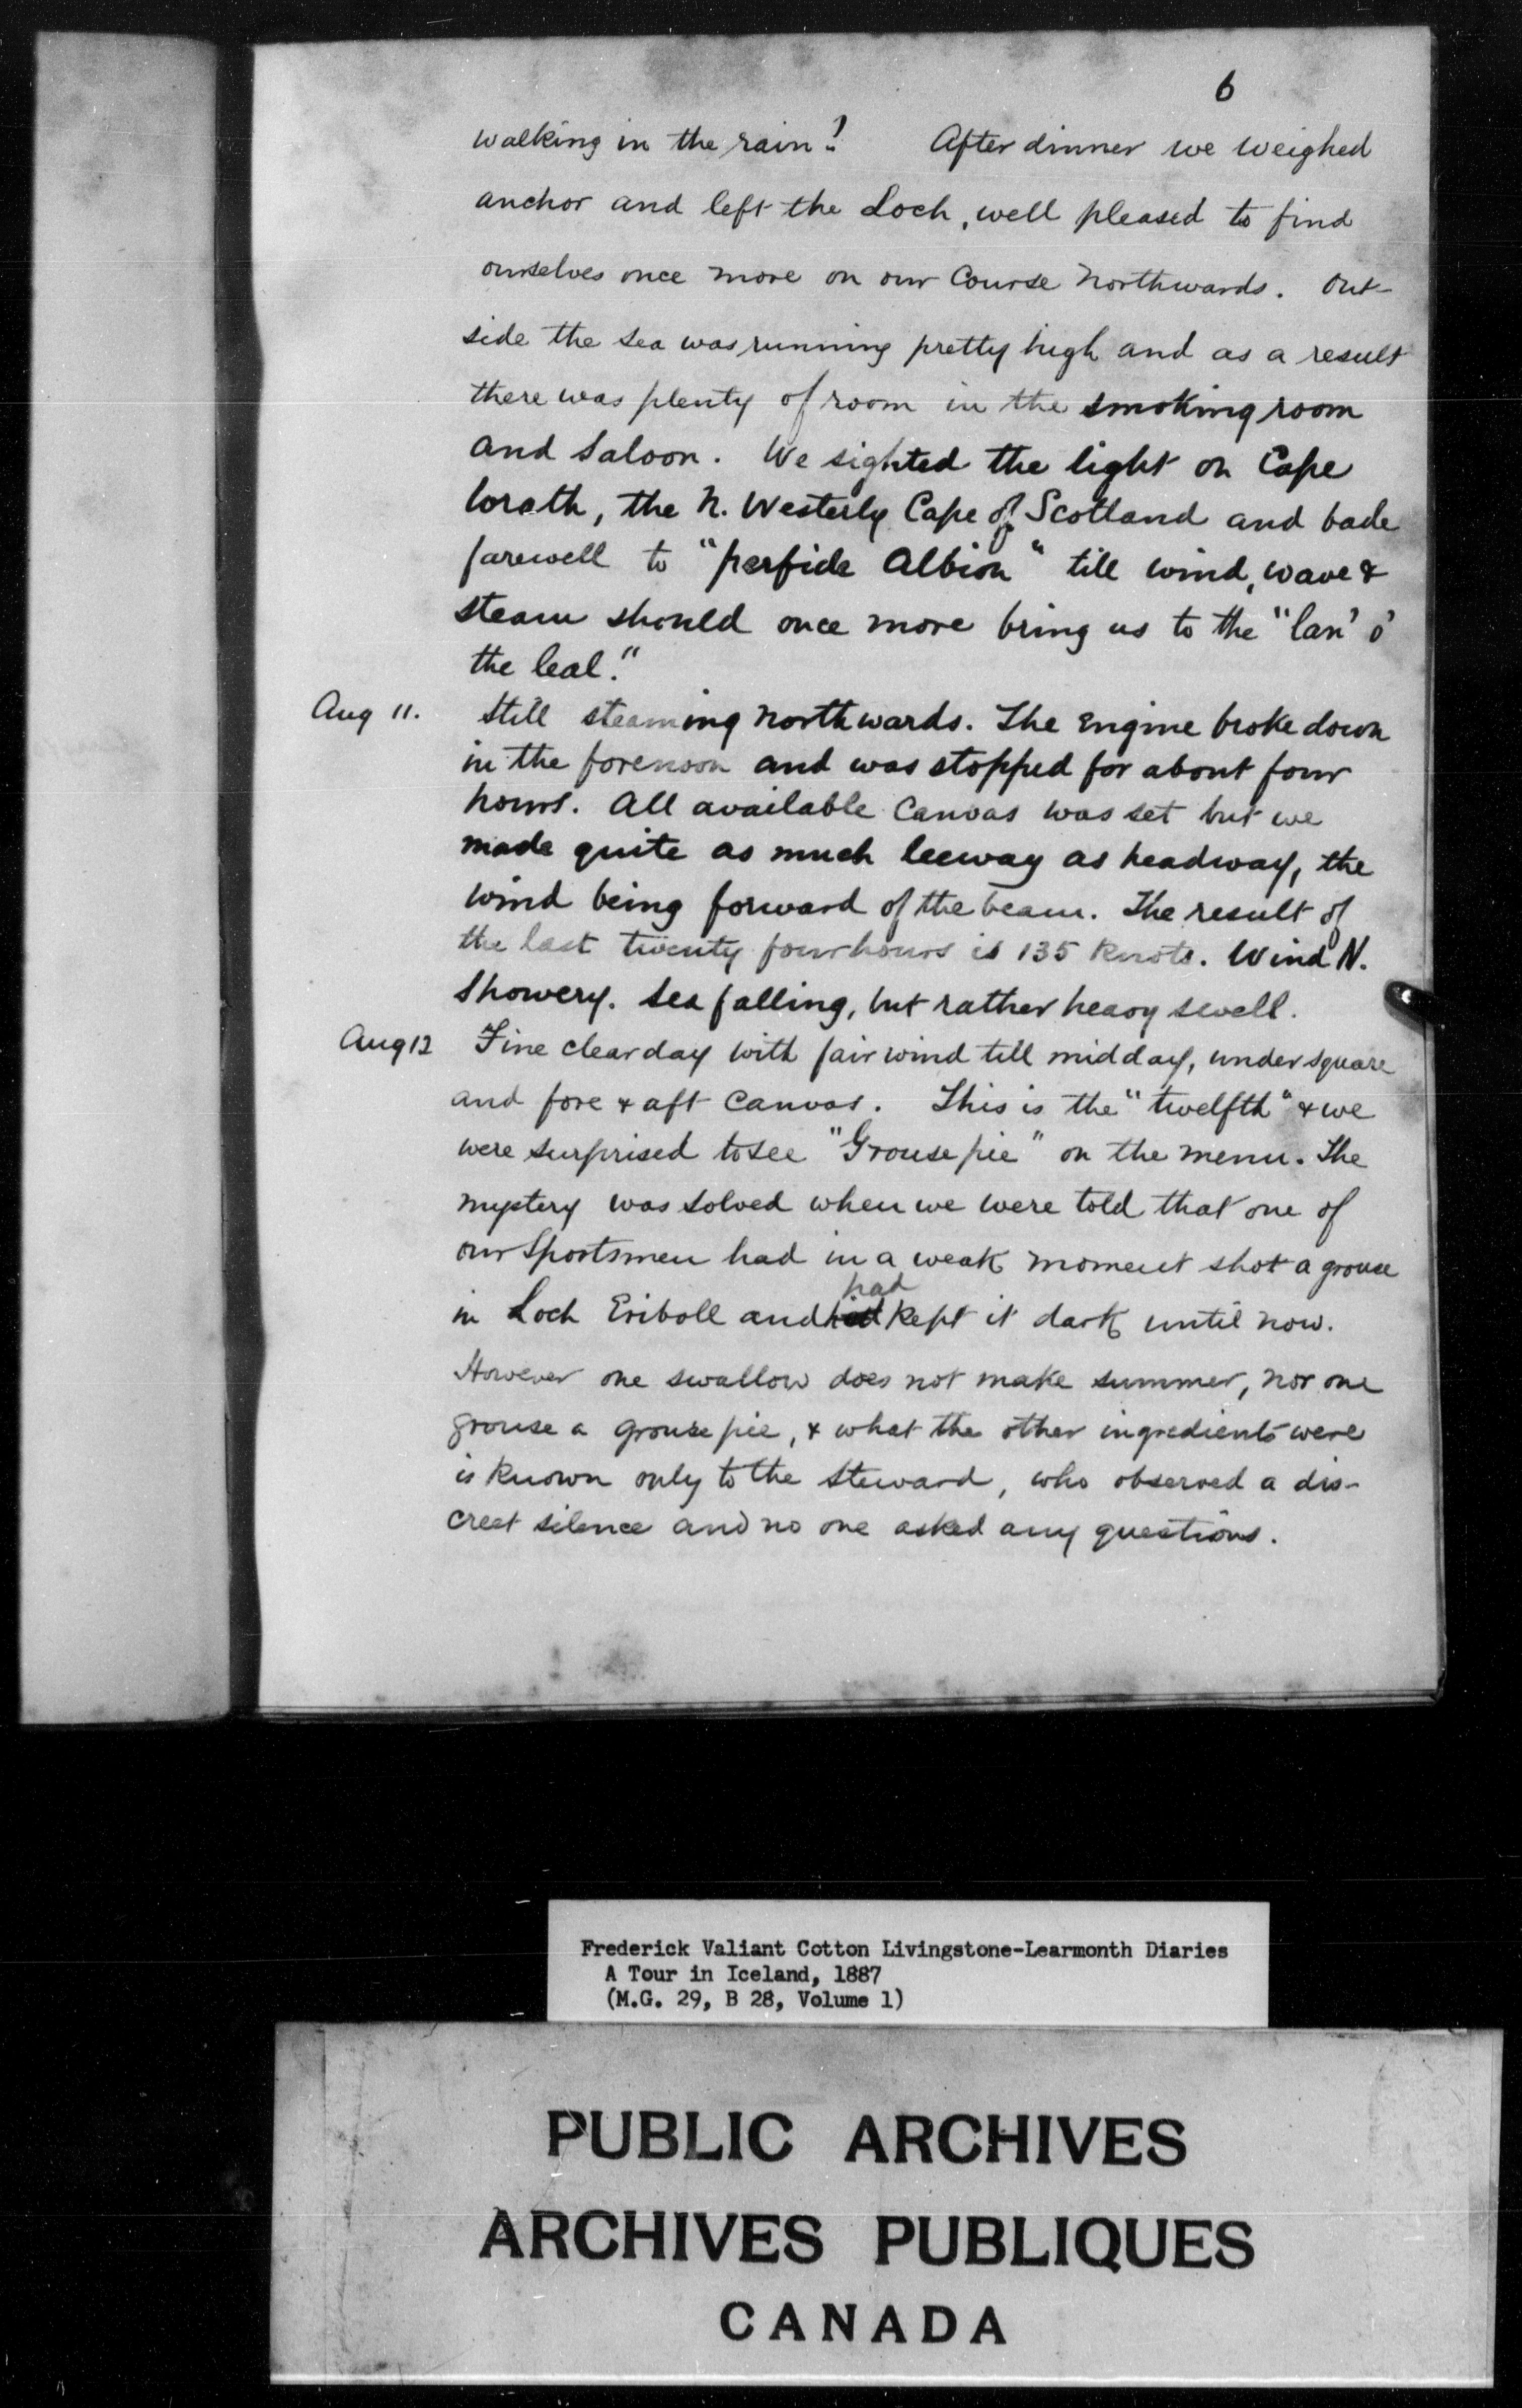 6
walking in the rain! After dinner we weighed
anchor and left the Loch, well pleased to find
ourselves once more on our course northwards. Out-
side the sea was running pretty high and as a result
there was plenty of room in the smoking room
and saloon. We sighted the light on Cape
Wrath, the N. Westerly Cape of Scotland and bade
farewell to "perfide Albion" till wind, wave &
steam should once more bring us to the "lan' o'
the leal."
Aug 11. Still steaming northwards. The Engine broke down
in the forenoon and was stopped for about four
hours. All available canvas was set but we
made quite as much leeway as headway, the
wind being forward of the beam. The result of
the last twenty four hours is 135 knots. Wind N.
Showery. Sea falling, but rather heavy swell.
Aug 12 Fine clear day with fair wind till midday, under square
and fore & aft canvas. This is the "twelfth" & we
were surprised to see "Grouse pie" on the menu. The
mystery was solved when we were told that one of
our Sportsmen had in a weak moment shot a grouse
had
in Loch Eriboll and kept it dark until now.
However one swallow does not make summer, nor one
grouse a grouse pie, & what the other ingredients were
is known only to the Steward, who observed a dis-
creet silence and no one asked any questions.
Frederick Valiant Cotton Livingstone-Learmonth Diaries
A Tour in Iceland, 1887
(M.G. 29, B 28, Volume 1)
PUBLIC ARCHIVES
ARCHIVES PUBLIQUES
CANADA